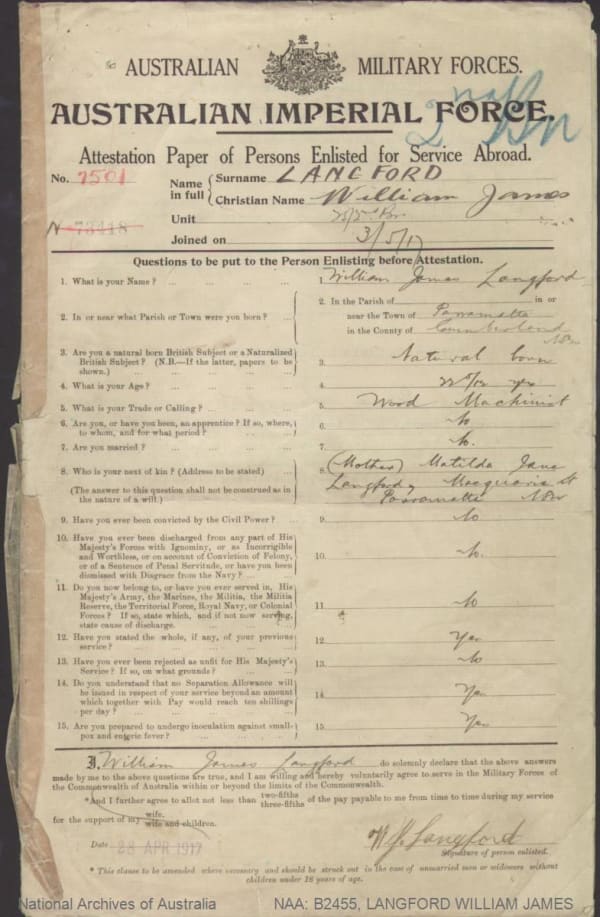 AUSTRALIAN MILITARY FORCES.
AUSTRALIAN IMPERIAL FORCE.
2nd Bn
Attestation Paper of Persons Enlisted for Service Abroad.
No. 7501
Name in full { Surname LANGFORD
Christian Name William James
N 73418
Unit
Joined on 3/5/17
Questions to be put to the Person Enlisting before Attestation.
1. What is your Name? ... 1. William James Langford
2. In or near what Parish or Town were you born? ... 2. In the Parish of in or
near the Town of Parramatta
in the County of Cumberland
NSW
3. Are you a natural born British Subject or a Naturalized
British Subject? (N.B.—If the latter, papers to be
shown.) 3. Natural born
4. What is your Age? 4. 22 5/12 yrs
5. What is your Trade or Calling? 5. Wood Machinist
6. Are you, or have you been, an apprentice? If so, where,
to whom, and for what period? 6. No
7. Are you married? 7. No.
8. Who is your next of kin? (Address to be stated) 8. (Mother) Matilda Jane
Langford, Macquarie St
Parramatta NSW
(The answer to this question shall not be construed as in
the nature of a will.)
9. Have you ever been convicted by the Civil Power? 9. No
10. Have you ever been discharged from any part of His
Majesty's Forces with Ignominy, or as Incorrigible
and Worthless, or on account of Conviction of Felony,
or of a Sentence of Penal Servitude, or have you been
dismissed with Disgrace from the Navy? 10. No.
11. Do you now belong to, or have you ever served in, His
Majesty's Army, the Marines, the Militia, the Militia
Reserve, the Territorial Force, Royal Navy, or Colonial
Forces? If so, state which, and if not now serving,
state cause of discharge. 11 No
12. Have you stated the whole, if any, of your previous
service? 12. Yes
13. Have you ever been rejected as unfit for His Majesty's
Service? If so, on what grounds? 13. No
14. Do you understand that no Separation Allowance will
be issued in respect of your service beyond an amount
which together with Pay would reach ten shillings
per day? 14 Yes
15. Are you prepared to undergo inoculation against small-
pox and enteric fever? 15. Yes
I, William James Langford do solemnly declare that the above answers
made by me to the above questions are true, and I am willing and hereby voluntarily agree to serve in the Military Forces of
the Commonwealth of Australia within or beyond the limits of the Commonwealth.
*And I further agree to allot not less than two-fifths three-fifths of the pay payable to me from time to time during my service
for the support of my wife. wife and children.
Date 28 APR 1917
W J Langford
Signature of person enlisted.
* This clause to be amended where necessary and should be struck out in the case of unmarried men or widowers without
children under 18 years of age.
National Archives of Australia NAA: B2455, LANGFORD WILLIAM JAMES